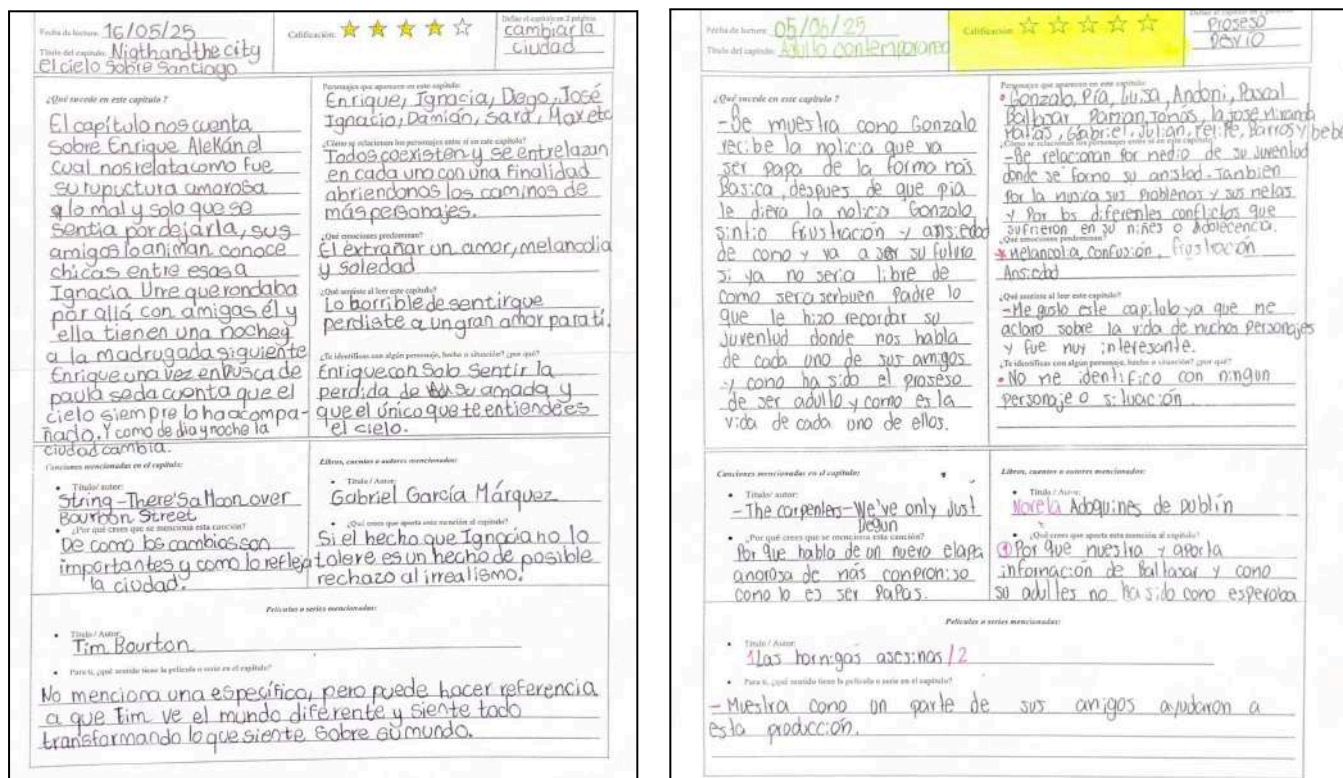 Fecha de lectura: 16/05/25
Título del capítulo: Nigthandthecity
El cielo Sobre Santiago
Calificación:
Define el capítulo en 2 palabras
cambiar la
ciudad
¿Qué sucede en este capítulo ?
El capítulo nos cuenta
Sobre Enrique Alekán el
cual nos relata como fue
su rupuctura amorosa
y lo mal y solo que se
sentia por dejarla, sus
amigos lo animan conoce
chicas entre esas a
Ignacia Urre que rondaba
por allá con amigas él y
ella tienen una noche y
a la madrugada siguiente
Enrique una vez en busca de
paula se da cuenta que el
cielo siempre lo ha acompa-
ñado. Y como de dia y noche la
ciudad cambia.
Personajes que aparecen en este capítulo:
Enrique, Ignacia, Diego, José
Ignacio, Damián, Sara, Max etc
¿Cómo se relacionan los personajes entre sí en este capítulo?
Todos coexisten y se entrelazan
en cada uno con una finalidad
abriendonos los caminos de
más personajes.
¿Qué emociones predominan?
El extrañar un amor, melancolia
y soledad
¿Qué sentiste al leer este capítulo?
Lo horrible de sentir que
perdiste a un gran amor para ti.
¿Te identificas con algún personaje, hecho o situación? ¿por qué?
Enrique con Solo Sentir la
perdida de su amada y
que el único que te entiende es
el cielo.
Canciones mencionadas en el capítulo:
• Título/ autor:
String - There'Sa Moon over
Bourbon Street
• ¿Por qué crees que se menciona esta canción?
De como los cambios son
importantes y como lo refleja
la ciudad.
Libros, cuentos o autores mencionados:
• Título / Autor:
Gabriel García Márquez
• ¿Qué crees que aporta esta mención al capítulo?
Si el hecho que Ignacia no lo
tolere es un hecho de posible
rechazo al irrealismo.
Películas o series mencionadas:
• Título / Autor:
Tim Bourton
• Para ti, ¿qué sentido tiene la película o serie en el capítulo?
No menciona una específico, pero puede hacer referencia
a que Tim ve el mundo diferente y siente todo
transformando lo que siente sobre su mundo.
Fecha de lectura: 05/05/25
Título del capítulo: Adulto contemporaneo
Calificación:
Proseso
Devio
¿Qué sucede en este capítulo ?
-Se muestra como Gonzalo
recibe la noticia que va
ser papa de la forma mas
Basica, despues de que pia
le diera la noticia Gonzalo
sintio frustración y ansiedad
de como y va a ser su futuro
si ya no seria libre de
como sera ser buen Padre lo
que le hizo recordar su
juventud donde nos habla
de cada uno de sus amigos
y como ha sido el proseso
de ser adulto y como es la
vida de cada uno de ellos.
Personajes que aparecen en este capítulo:
• Gonzalo, Pía, Luisa, Andoni, Pascal
Baltazar Roman, Jonas, la jose, Miranda
Matias, Gabriel, Julian, Felipe, Barros y bebe
¿Cómo se relacionan los personajes entre sí en este capítulo?
-Se relacionan por medio de su juventud
donde se formo su amistad. Tanbien
por la musica sus problemas y sus metas
y Por los diferentes conflictos que
sufrieron en su niñes o adolecencia.
¿Qué emociones predominan?
* Melancolia, confusión, frustración
Ansiedad
¿Qué sentiste al leer este capítulo?
-Me gusto este capitulo ya que me
aclaro sobre la vida de muchos Personajes
y fue muy interesante.
¿Te identificas con algún personaje, hecho o situación? ¿por qué?
• No me identifico con ningun
personaje o situación
Canciones mencionadas en el capítulo:
• Título/ autor:
-The carpenters-We've only just
Begun
• ¿Por qué crees que se menciona esta canción?
Por que habla de un nuevo etapa
amorosa de más conpromiso
como lo es ser PaPas.
Libros, cuentos o autores mencionados:
• Título / Autor:
Novela Adoquines de Dublín
• ¿Qué crees que aporta esta mención al capítulo?
① Por que muestra y aporta
información de Baltasar y como
su adultes no ha sido como esperaba
Películas o series mencionadas:
• Título / Autor:
1Las hormigas asesinas/2
• Para ti, ¿qué sentido tiene la película o serie en el capítulo?
- Muestra como un parte de sus amigos ayudaron a
esta producción.